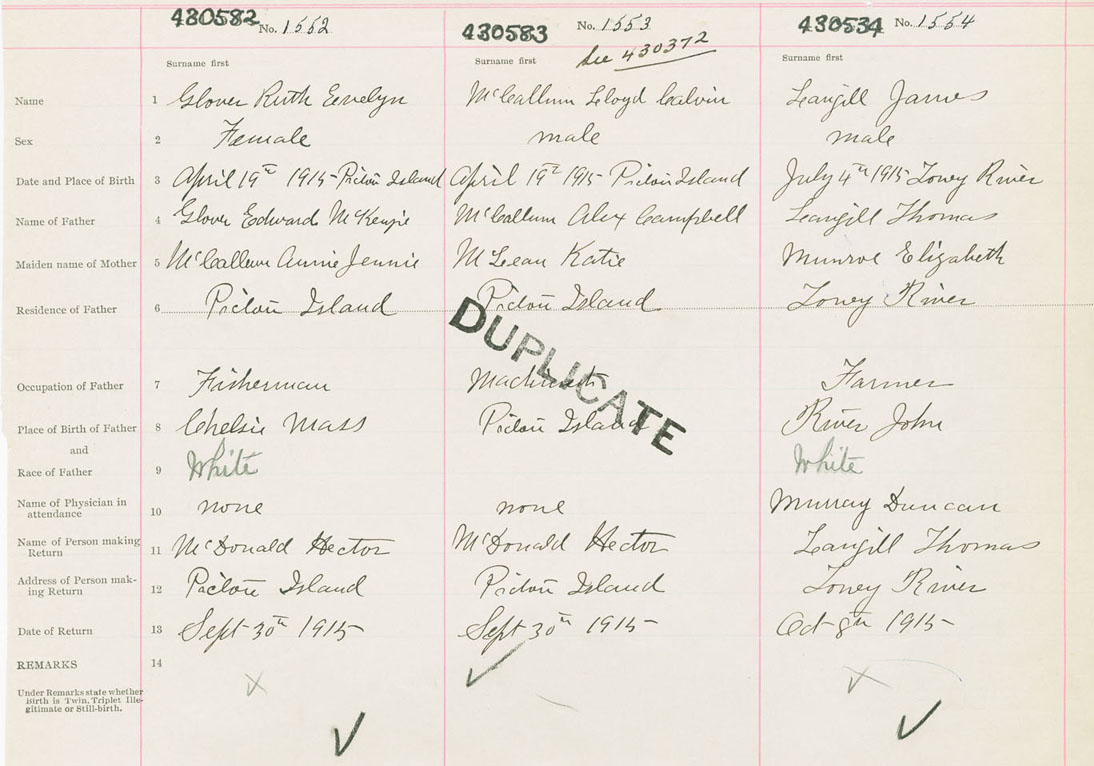 430582 No. 1552
430583 No. 1553
430534 No. 1554
See 430372
Surname first Surname first Surname first
Name 1 Glover Ruth Evelyn McCallum Lloyd Calvin Langill James
Sex 2 Female male male
Date and Place of Birth 3 April 19th 1915 - Pictou Island April 19th 1915 Pictou Island July 4th 1915 Toney River
Name of Father 4 Glover Edward McKenzie McCallum Alex Campbell Langill Thomas
Maiden name of Mother 5 McCallum Annie Jennie McLean Katie Munroe Elizabeth
Residence of Father 6 Pictou Island Pictou Island Toney River
DUPLICATE
Occupation of Father 7 Fisherman Machinist Farmer
Place of Birth of Father 8 Chelsie Mass Pictou Island River John
and
Race of Father 9 White White
Name of Physician in
attendance 10 none none Murray Duncan
Name of Person making
Return 11 McDonald Hector McDonald Hector Langill Thomas
Address of Person mak-
ing Return 12 Pictou Island Pictou Island Toney River
Date of Return 13 Sept 30th 1915 Sept 30th 1915 Oct 8th 1915
REMARKS 14
Under Remarks state whether
Birth is Twin, Triplet Ille-
gitimate or Still-birth.